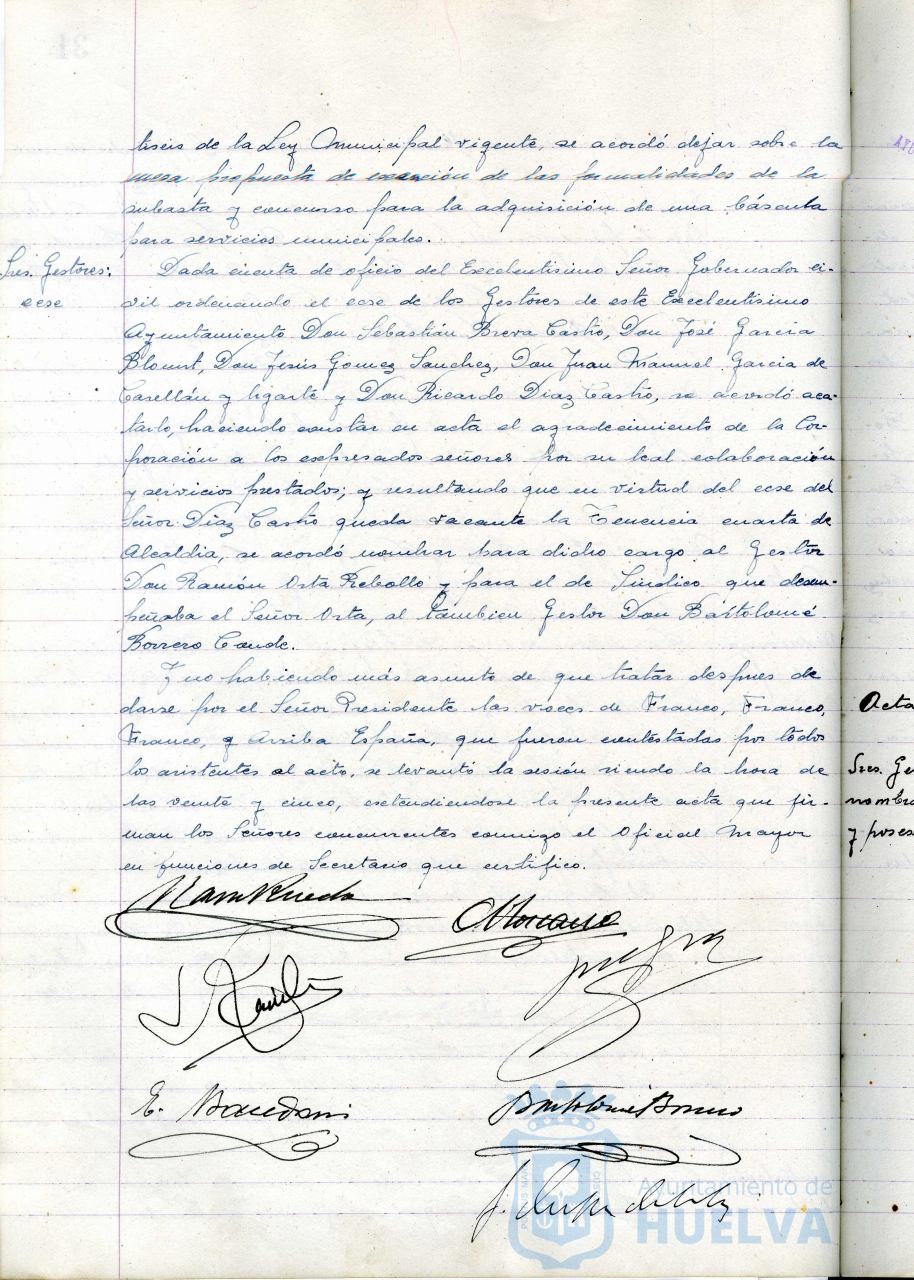 tiseis de la Ley Municipal vigente, se acordó dejar sobre la
mesa propuesta de exención de las formalidades de la
subasta y concurso para la adquisición de una báscula
para servicios municipales.
Sres. Gestores:
cese
Dada cuenta de oficio del Excelentísimo Señor Gobernador ci-
vil ordenando el cese de los Gestores de este Excelentísimo
Ayuntamiento Don Sebastián Breva Castro, Don José García
Blount, Don Jesús Gomez Sanchez, Don Juan Manuel Garcia de
Carellán y Ugarte y Don Ricardo Diaz Castro, se acordó aca-
tarlo, haciendo constar en acta el agradecimiento de la Cor-
poración a los expresados señores por su leal colaboración
y servicios prestados; y resultando que en virtud del cese del
Señor Diaz Castro queda vacante la Tenencia cuarta de
Alcaldia, se acordó nombrar para dicho cargo al Gestor
Don Ramón Orta Rebollo y para el de Síndico que desem-
peñaba el Señor Orta, al tambien Gestor Don Bartolomé
Borrero Conde.
Y no habiendo más asunto de que tratar despues de
darse por el Señor Presidente las voces de Franco, Franco,
Franco, y Arriba España, que fueron contestadas por todos
los asistentes al acto, se levantó la sesión siendo la hora de
las veinte y cinco, extendiendose la presente acta que fir-
man los Señores concurrentes conmigo el Oficial Mayor
en funciones de Secretario que certifico.
Acta
Sres. Ge
nombra
y poses
Bartolomé Borrero
Ayuntamiento de
HUELVA